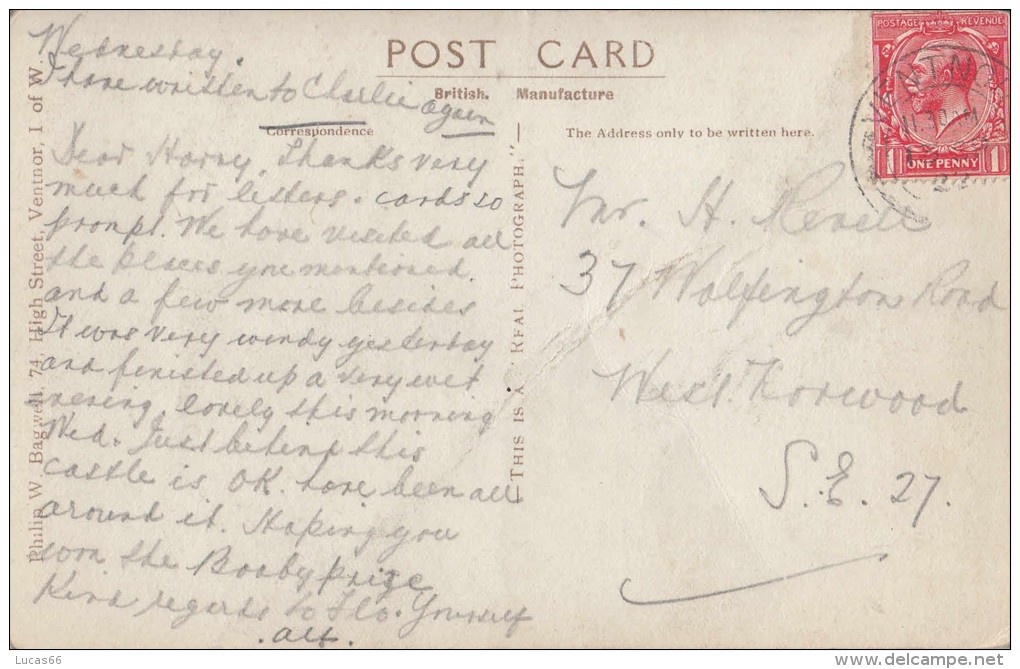 POST CARD
British. Manufacture
Correspondence
The Address only to be written here.
Wednesday.
I have written to Charlie again
Dear Harry, Thanks very
much for letters. cards so
prompt. We have visited all
the places you mentioned.
and a few more besides
It was very windy yesterday
and finished up a very wet
evening. lovely this morning
Wed. Just behind this
castle is OK. have been all
around it. Hoping you
won the Booby prize
Kind regards to Flo. Yourself
Alf.
Mr. H. Revell
37 Wolfington Road
West Norwood
S.E. 27.
Philip W. Bagwell, 74, High Street, Ventnor, I of W.
"THIS IS A REAL PHOTOGRAPH."
POSTAGE REVENUE
ONE PENNY
1 1
VENTNO
11.30 AM
Lucas66
delcampe.net